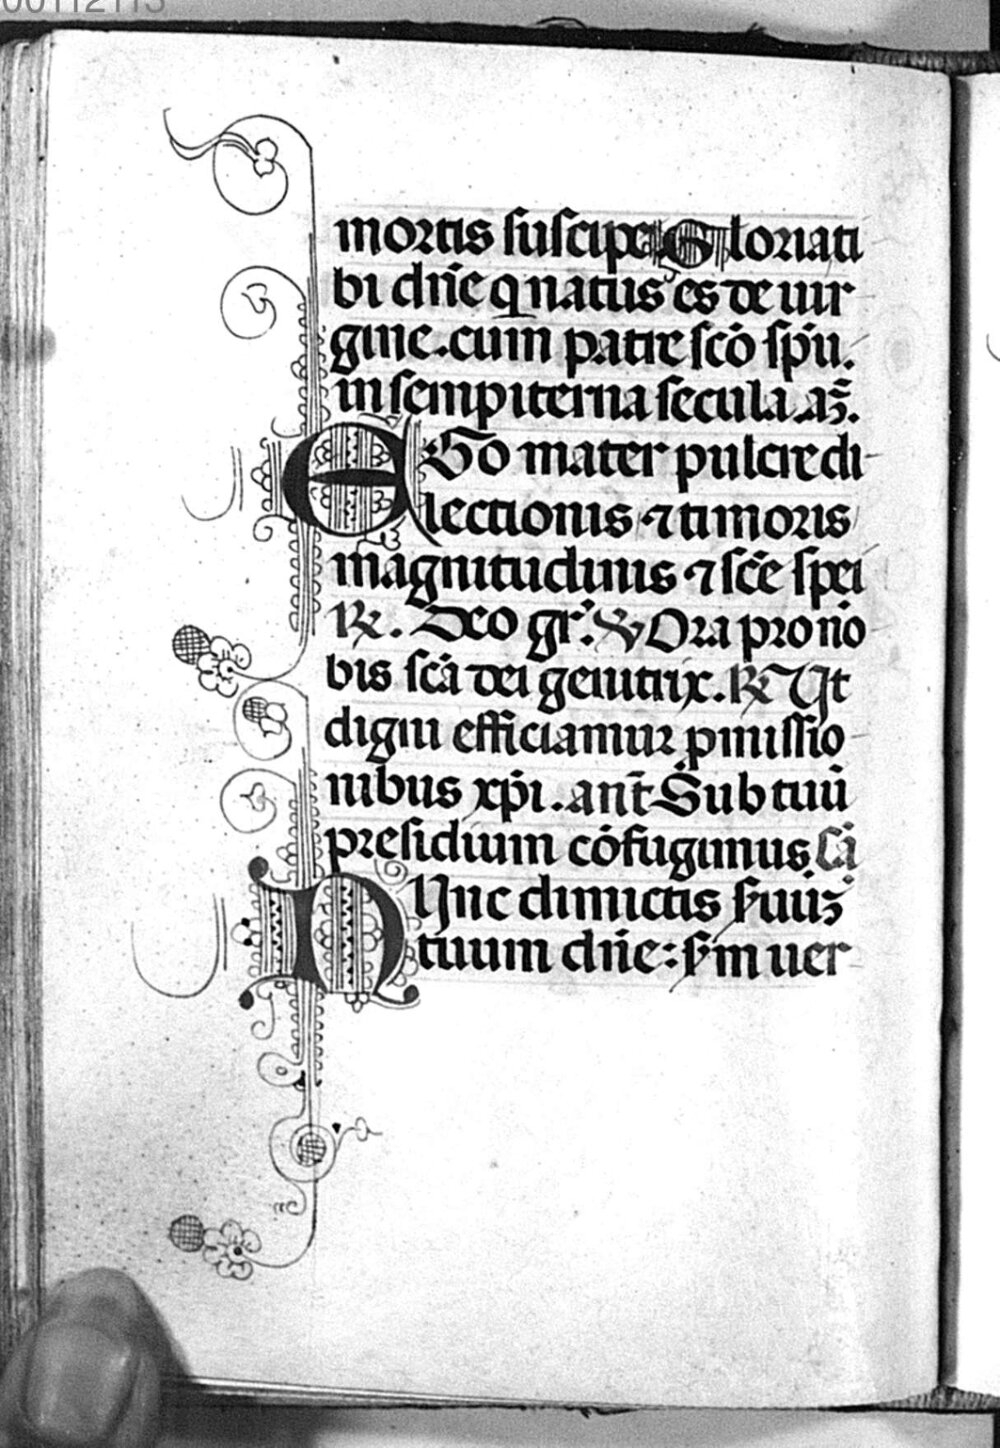 00112113
mortis suscipe Gloria ti
bi dñe q natus es de uir
gine. cum patre scō spũ.
in sempiterna secula. aʒ̃.
EGo mater pulcre di
lectionis ⁊ timoris
magnitudinis ⁊ scē spei
℟. Deo gr̃. ℣ Ora pro no
bis scā dei genitrix. ℟ Ut
digni efficiamur ꝓmissio
nibus xp̃i. añt Sub tuũ
presidium cōfugimus Cã
NUnc dimictis ẜuuʒ
tuum dñe: ẜm uer